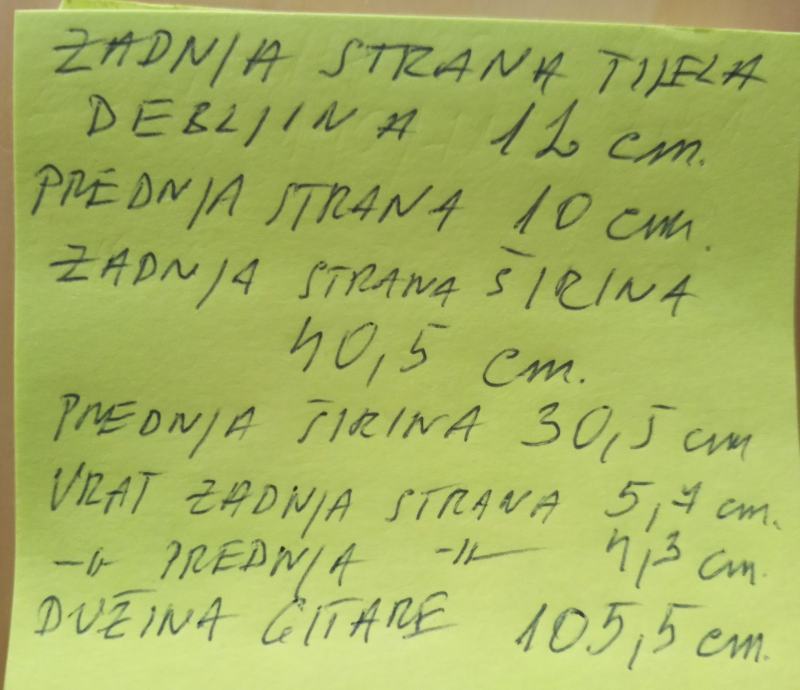 ZADNJA STRANA TIJELA
DEBLJINA 12 cm.
PREDNJA STRANA 10 cm.
ZADNJA STRANA ŠIRINA
40,5 cm.
PREDNJA ŠIRINA 30,5 cm
VRAT ZADNJA STRANA 5,7 cm.
-॥- PREDNJA -॥- 4,3 cm.
DUŽINA GITARE 105,5 cm.